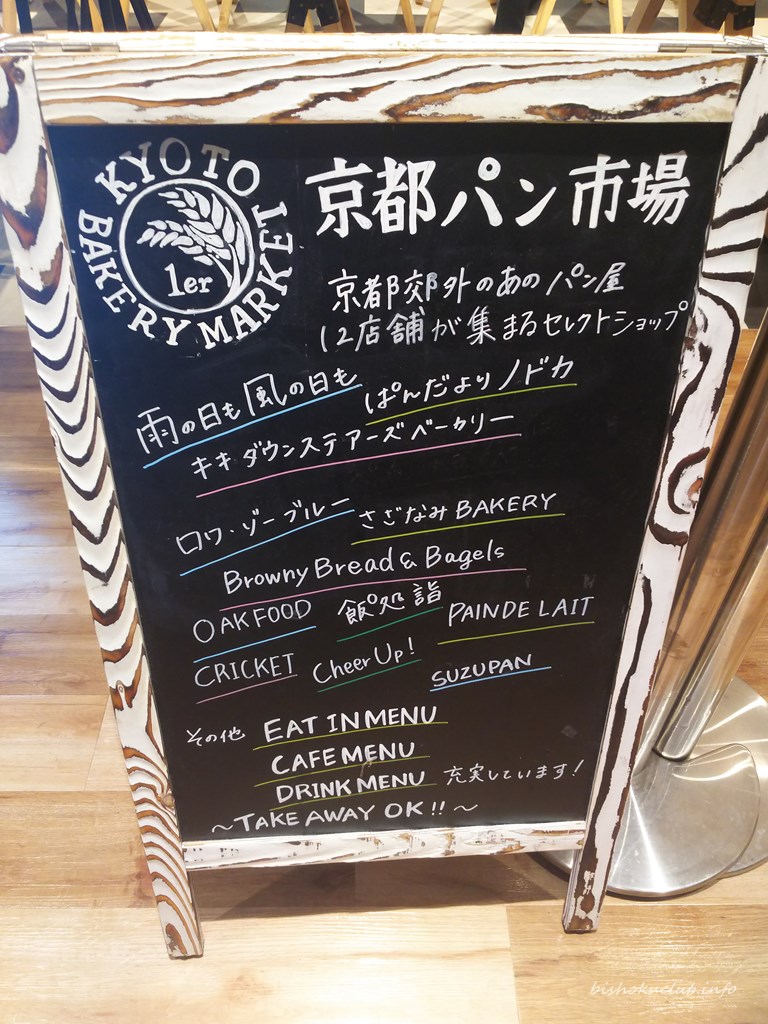 KYOTO
BAKERY MARKET
1er
京都パン市場
京都郊外のあのパン屋
12店舗が集まるセレクトショップ
雨の日も風の日も ぱんだより ノドカ
キキダウンステアーズベーカリー
ロワ・ゾーブルー さざなみBAKERY
Browny Bread & Bagels
OAK FOOD 飽処 詣 PAIN DE LAIT
CRICKET Cheer Up! SUZUPAN
その他 EAT IN MENU
CAFE MENU
DRINK MENU 充実しています!
〜TAKE AWAY OK!!〜
bishokuclub.info